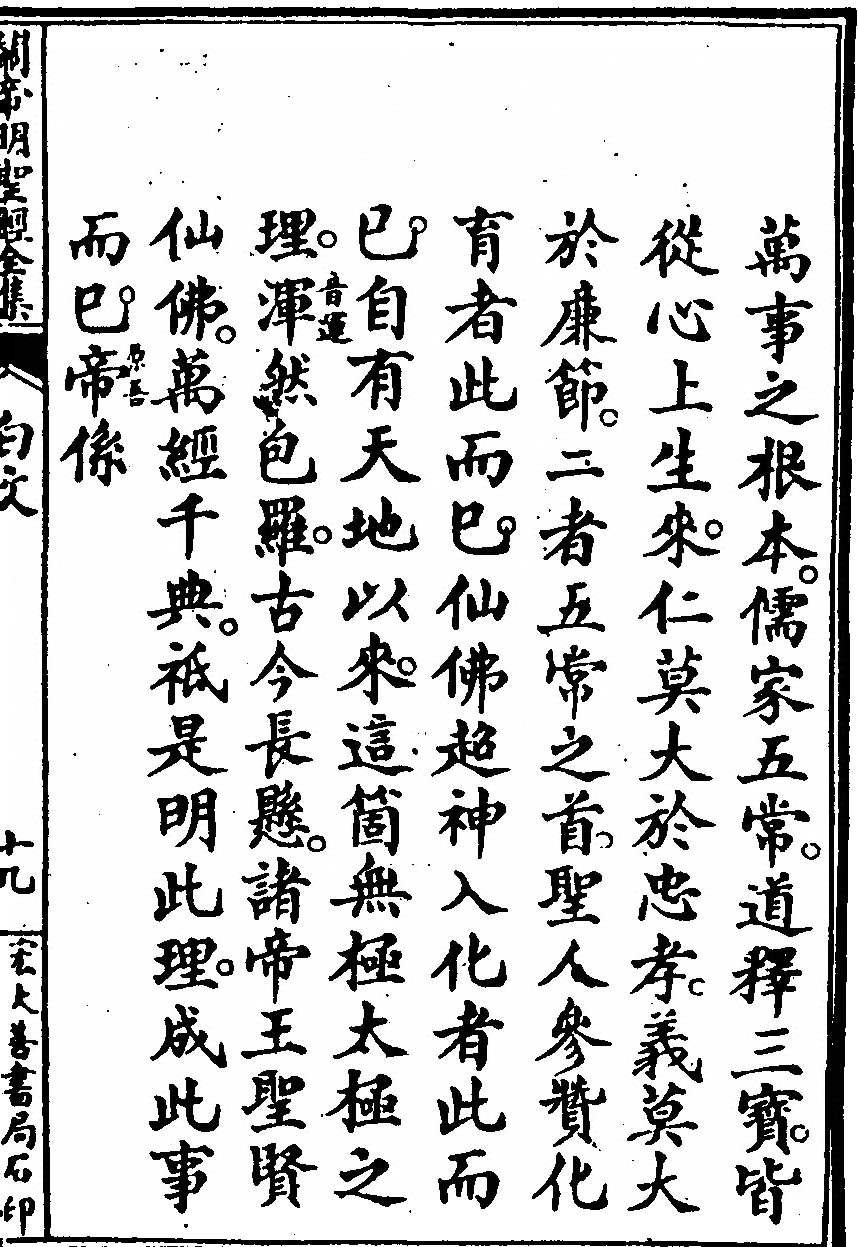 萬事之根本。儒家五常。道釋三寶。皆
從心上生來。仁莫大於忠孝。義莫大
於廉節。二者五常之首。聖人參贊化
育者此而已。仙佛超神入化者此而
已。自有天地以來。這箇無極太極之
理。渾音運然包羅。古今長懸。諸帝王聖賢
仙佛。萬經千典。祇是明此理。成此事
而已。帝係
原吾
關帝明聖經全集
白文
十九
宏大善書局石印